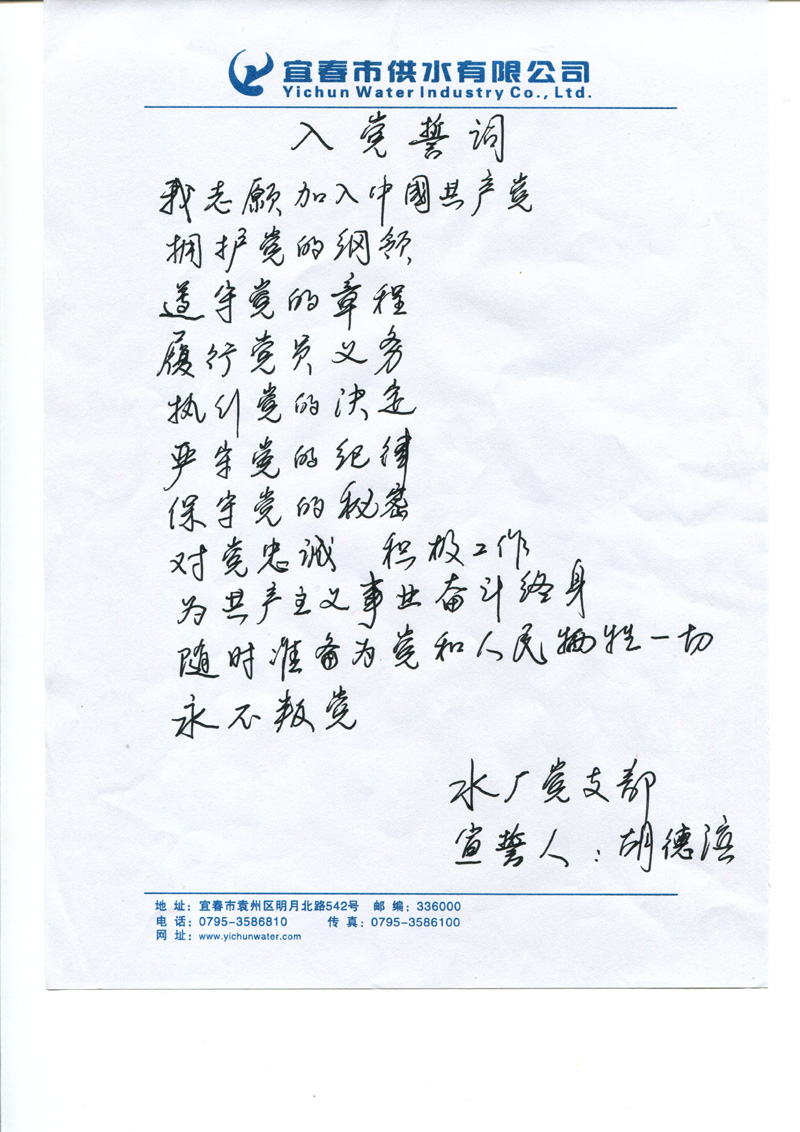 宜春市供水有限公司
Yichun Water Industry Co., Ltd.
入党誓词
我志愿加入中國共产党
拥护党的纲领
遵守党的章程
履行党员义务
执行党的决定
严守党的纪律
保守党的秘密
对党忠诚 积极工作
为共产主义事业奋斗终身
随时准备为党和人民牺牲一切
永不叛党
水厂党支部
宣誓人：胡德滨
地 址：宜春市袁州区明月北路542号 邮 编：336000
电 话：0795-3586810 传 真：0795-3586100
网 址：www.yichunwater.com